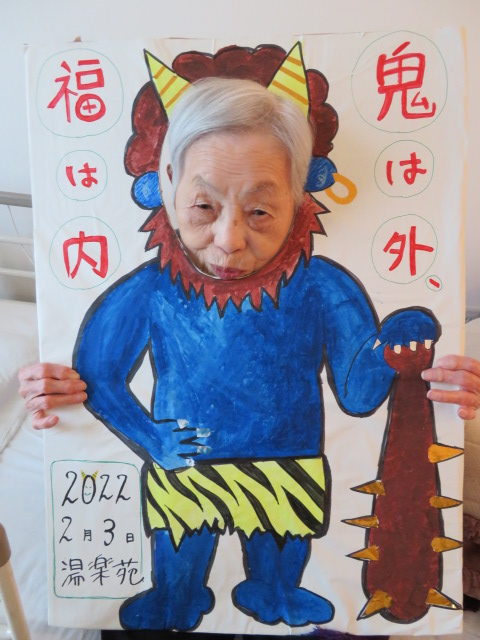 鬼は外、
福は内
2022
2月3日
温楽苑